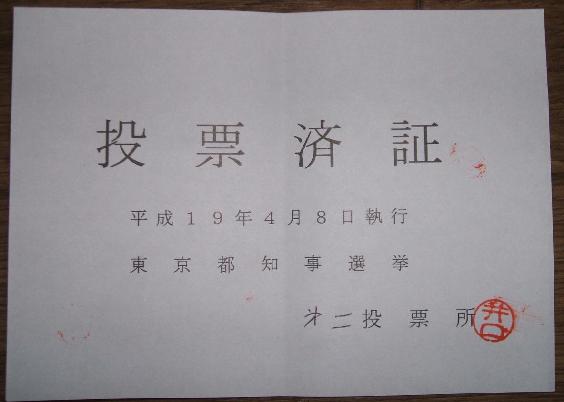 投票済証
平成19年4月8日執行
東京都知事選挙
才二投票所
井口